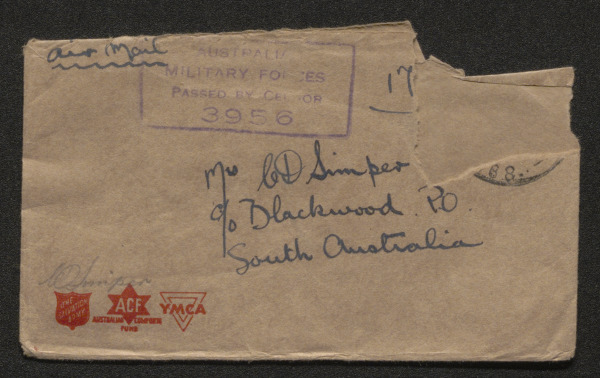 Air Mail
AUSTRALIAN
MILITARY FORCES
PASSED BY CENSOR
3956
17
Mr CD Simper
c/o Blackwood P.O.
South Australia
CD Simper
THE SALVATION ARMY
ACF
AUSTRALIAN COMFORTS
FUND
YMCA
68